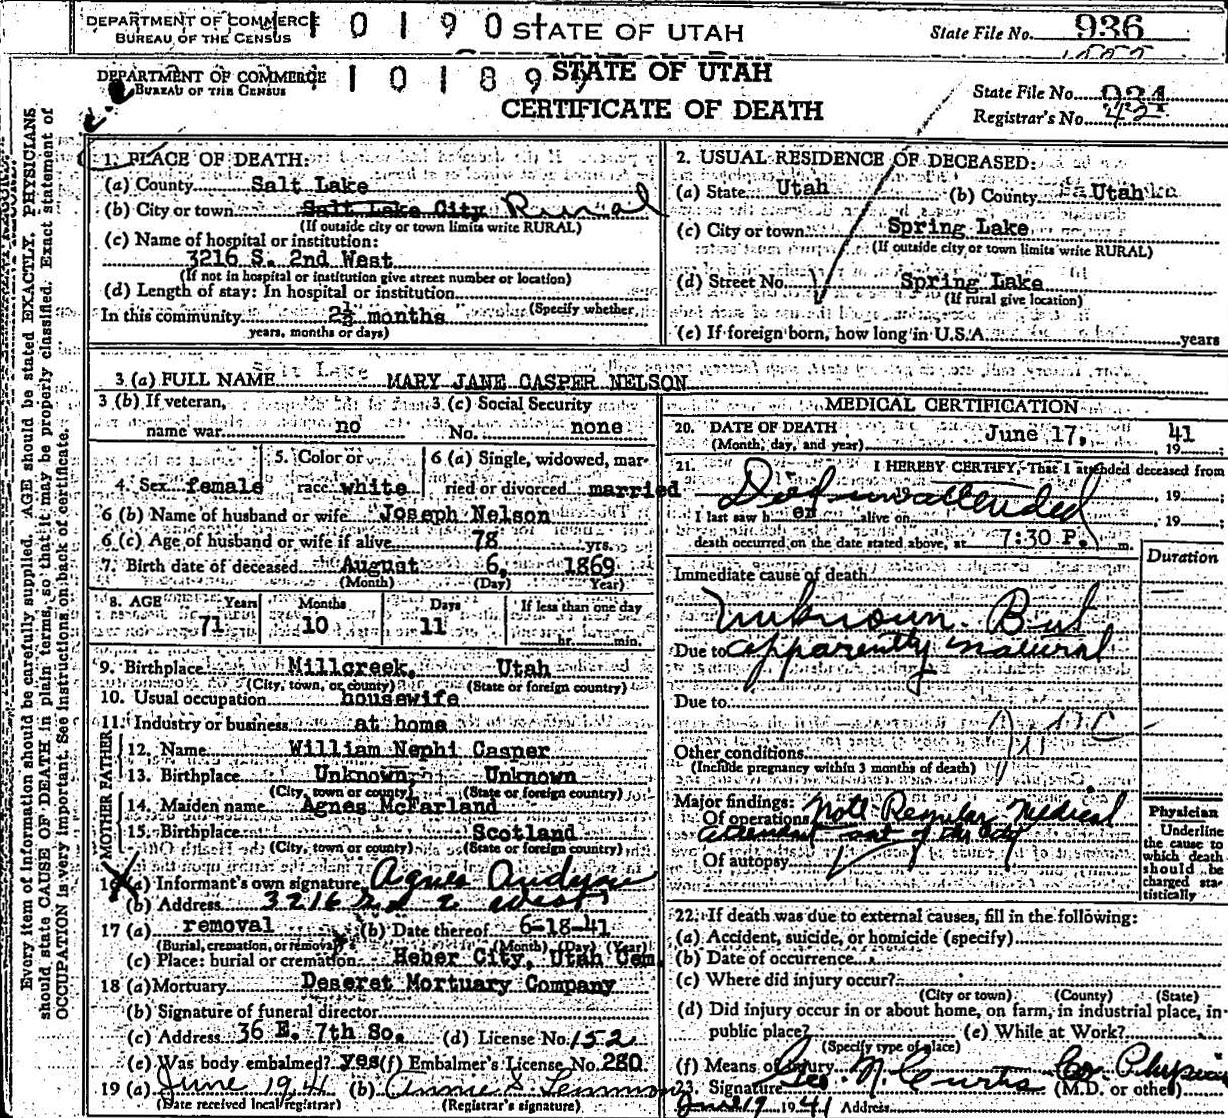 DEPARTMENT OF COMMERCE
BUREAU OF THE CENSUS
1 0 1 9 0
STATE OF UTAH
State File No. 936
DEPARTMENT OF COMMERCE
BUREAU OF THE CENSUS
1 0 1 8 9
STATE OF UTAH
CERTIFICATE OF DEATH
State File No. 934
Registrar's No.
Every item of information should be carefully supplied. AGE should be stated EXACTLY. PHYSICIANS
should state CAUSE OF DEATH in plain terms, so that it may be properly classified. Exact statement of
OCCUPATION is very important. See instructions on back of certificate.
1. PLACE OF DEATH:
(a) County Salt Lake
(b) City or town Salt Lake City Rural
(If outside city or town limits write RURAL)
(c) Name of hospital or institution:
3216 S. 2nd West
(If not in hospital or institution give street number or location)
(d) Length of stay: In hospital or institution
(Specify whether
In this community 2½ months
years, months or days)
2. USUAL RESIDENCE OF DECEASED:
(a) State Utah (b) County Utah
(c) City or town Spring Lake
(If outside city or town limits write RURAL)
(d) Street No. Spring Lake
(If rural give location)
(e) If foreign born, how long in U.S.A. years
3 (a) FULL NAME MARY JANE CASPER NELSON
3 (b) If veteran, name war no
3 (c) Social Security No. none
4. Sex female
5. Color or race white
6 (a) Single, widowed, married or divorced married
6 (b) Name of husband or wife Joseph Nelson
6 (c) Age of husband or wife if alive 78 yrs.
7. Birth date of deceased August 6, 1869
(Month) (Day) Year)
8. AGE Years Months Days If less than one day
71 10 11 hr. min.
9. Birthplace Millcreek, Utah
(City, town, or county) (State or foreign country)
10. Usual occupation housewife
11. Industry or business at home
FATHER
12. Name William Nephi Casper
13. Birthplace Unknown Unknown
(City, town or county) (State or foreign country)
MOTHER
14. Maiden name Agnes McFarland
15. Birthplace Scotland
(City, town or county) (State or foreign country)
16 (a) Informant's own signature Agnes
(b) Address 3216 West
17 (a) removal (b) Date thereof 6-18-41
(Burial, cremation, or removal) (Month) (Day) (Year)
(c) Place: burial or cremation Heber City, Utah Cem.
18 (a) Mortuary Deseret Mortuary Company
(b) Signature of funeral director
(c) Address 36 E. 7th So. (d) License No. 152
(e) Was body embalmed? yes (f) Embalmer's License No. 280
19 (a) June 1941 (b) Annie S. Lemmon
(Date received local registrar) (Registrar's signature)
MEDICAL CERTIFICATION
20. DATE OF DEATH June 17, 1941
(Month, day, and year)
21. I HEREBY CERTIFY, That I attended deceased from
Died unattended , 19
I last saw her alive on , 19
death occurred on the date stated above, at 7:30 P. m.
Duration
Immediate cause of death
Unknown. But
Due to apparently natural
Due to
Other conditions
(Include pregnancy within 3 months of death)
Major findings:
Of operations Note Regular Medical
attendant out of the city
Of autopsy
Physician
Underline
the cause to
which death
should be
charged sta-
tistically
22. If death was due to external causes, fill in the following:
(a) Accident, suicide, or homicide (specify)
(b) Date of occurrence
(c) Where did injury occur?
(City or town) (County) (State)
(d) Did injury occur in or about home, on farm, in industrial place, in
public place? (e) While at Work?
(Specify type of place)
(f) Means of injury
23. Signature Geo. N. Curtis Co. Physician
(M.D. or other)
June 19 1941 Address